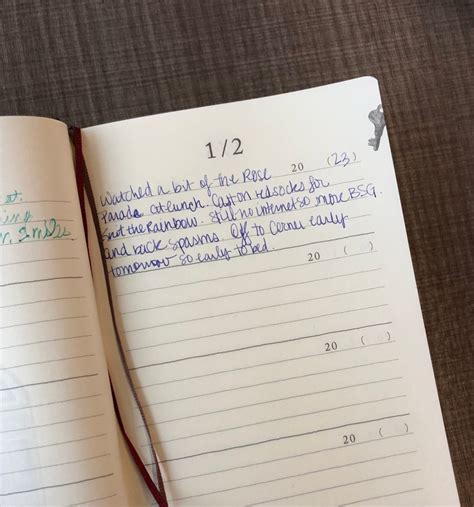 1/2
20 (23)
Watched a bit of the Rose
Parade at lunch. Cast on red socks for
the Rainbow. Still no internet so more BSG.
and back spasms. Off to early
tomorrow so early to bed.
20 ( )
20 ( )
20 ( )